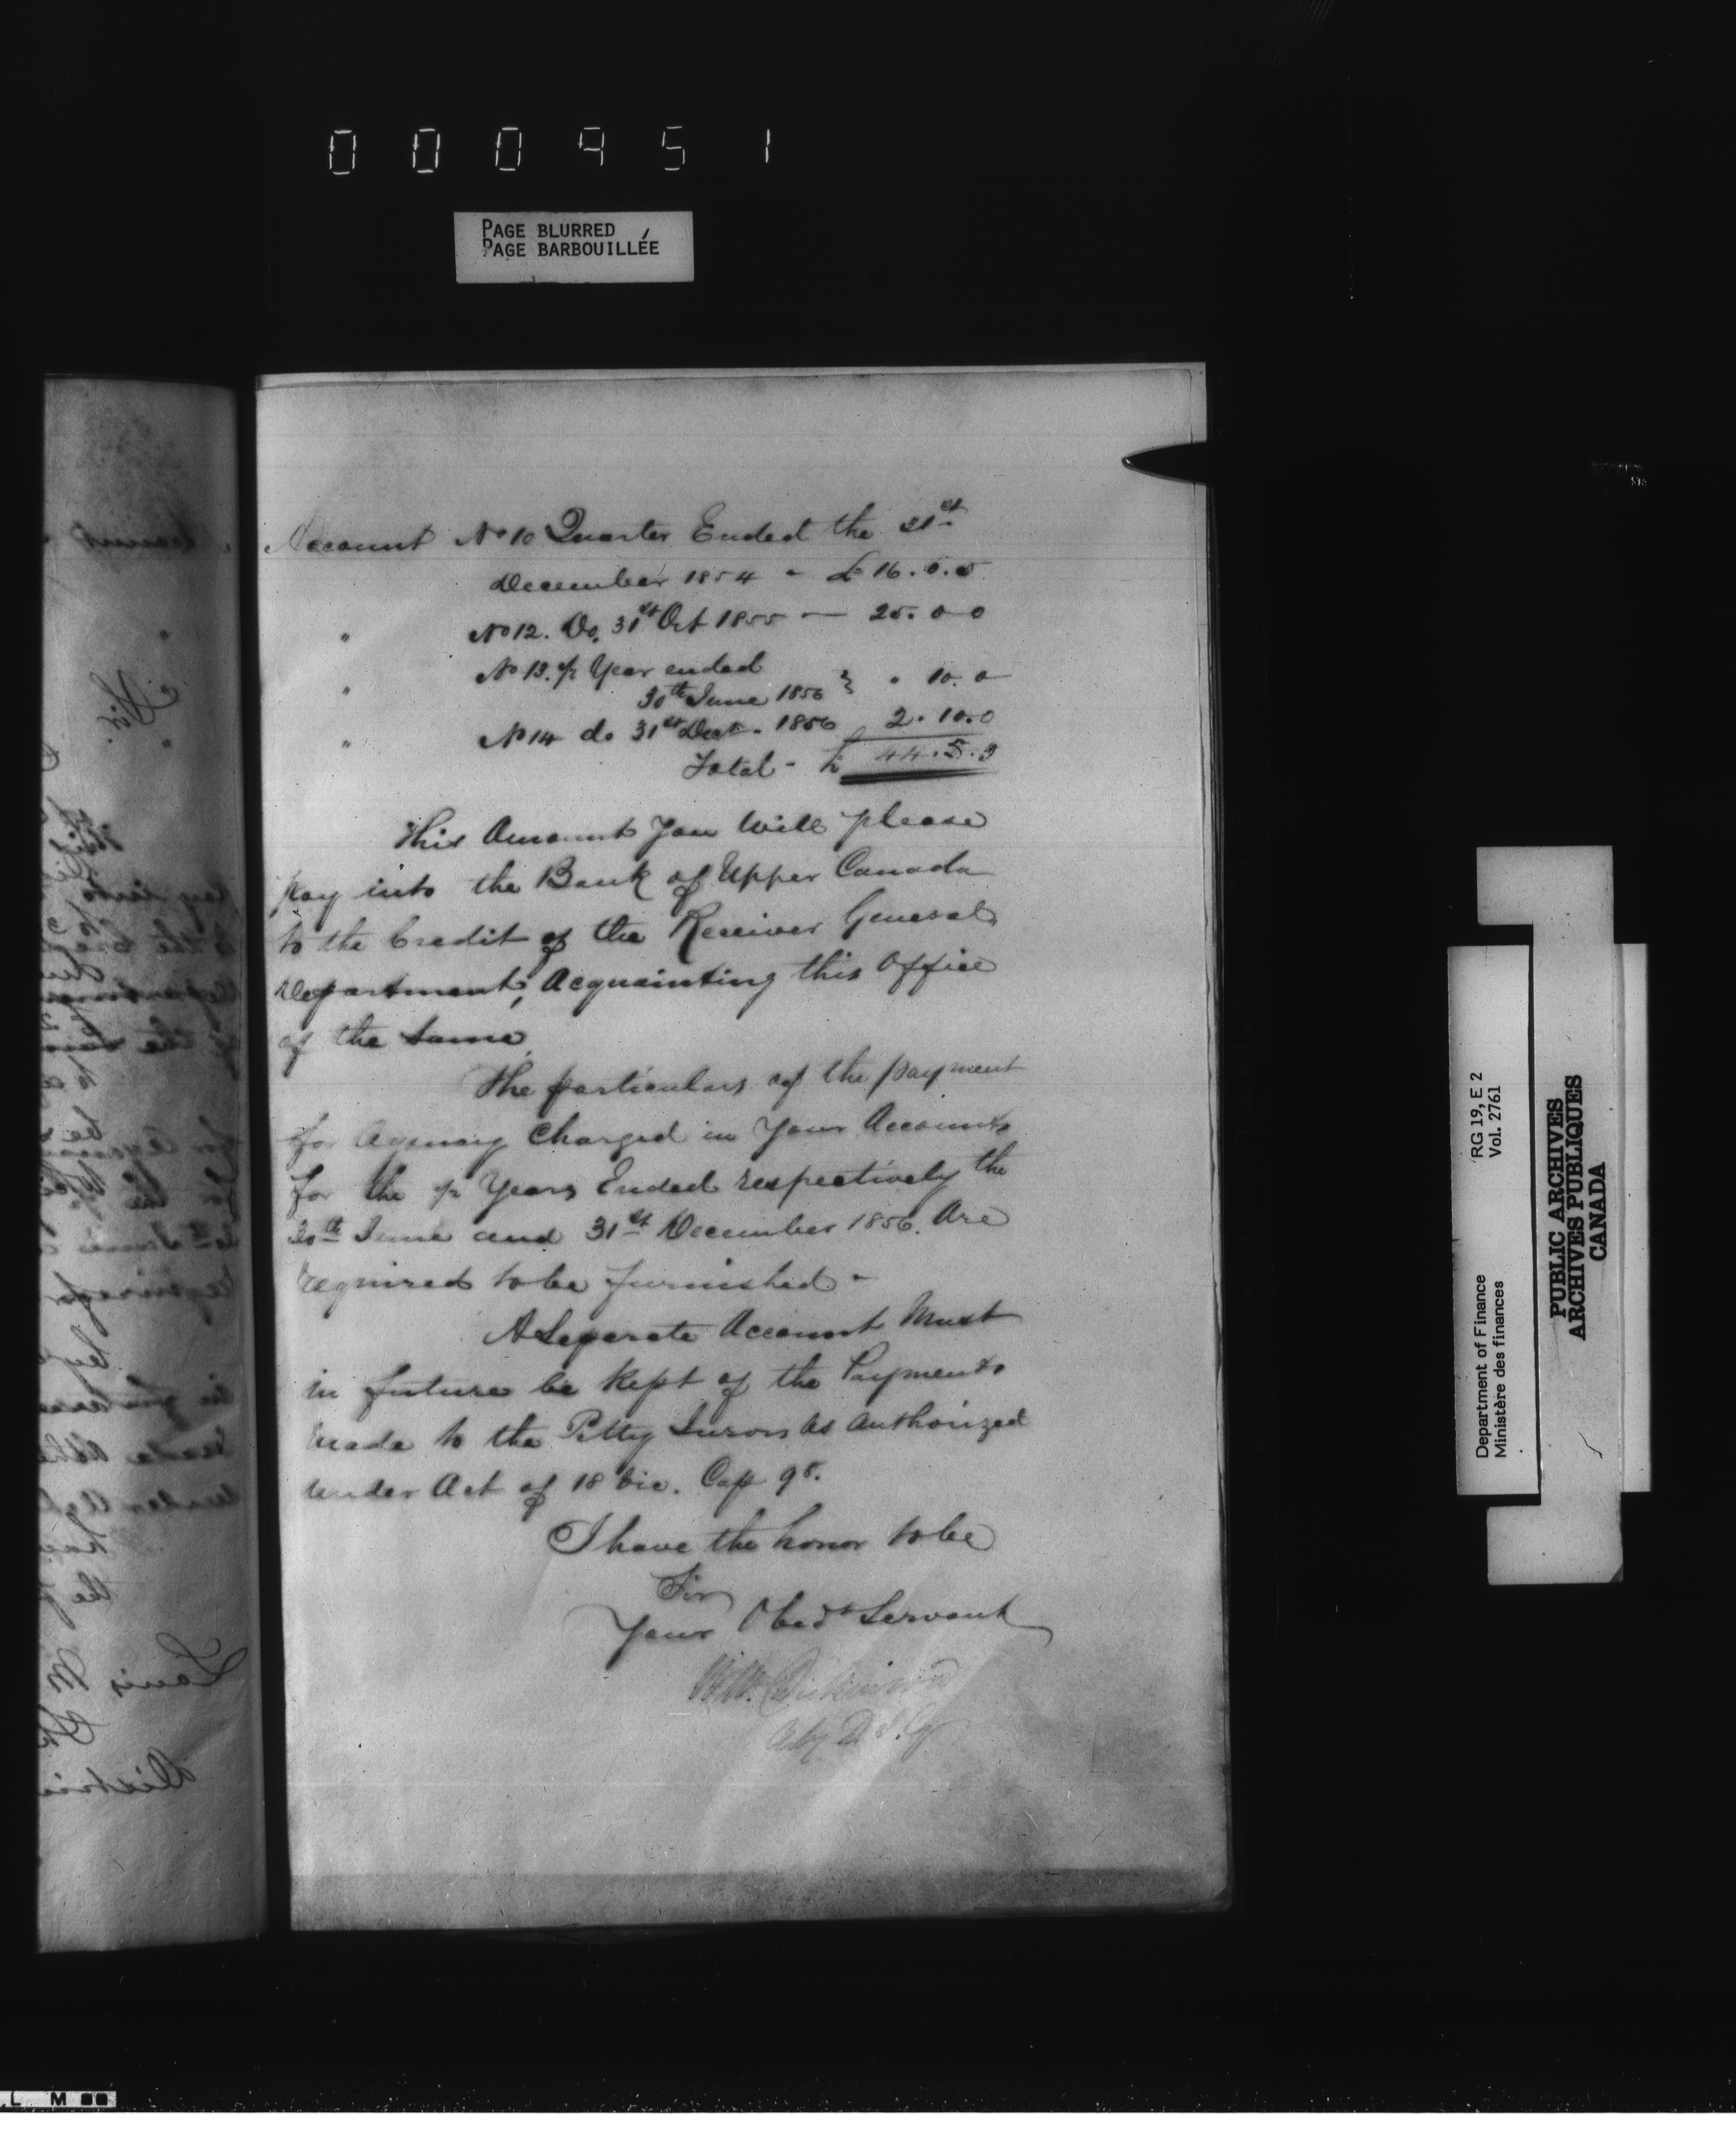 000951
PAGE BLURRED
PAGE BARBOUILLÉE
Account No 10 Quarter Ended the 31st
December 1854 - £ 16.5.5
" No 12. Do. 31st Oct 1855 — 25.0 0
" No 13. ½ Year ended
30th June 1856 } " 10.0
" No 14 do 31st Dect. 1856 2.10.0
Total - £ 44.5.
This Amount You Will please
pay into the Bank of Upper Canada
to the Credit of the Receiver General
Department, Acquainting this Office
of the same,
The particulars of the payment
for Agency Charged in Your Accounts
for the ½ Years Ended respectively the
30th June and 31st December 1856. Are
required to be furnished -
A Seperate Account Must
in future be Kept of the Payments
made to the Petty Jurors as authorized
under Act of 18 Vic. Cap 98.
I have the honor to be
Sir
Your Obedt Servant
Dickinson
RG 19, E 2
Vol. 2761
Department of Finance
Ministère des finances
PUBLIC ARCHIVES
ARCHIVES PUBLIQUES
CANADA
L M